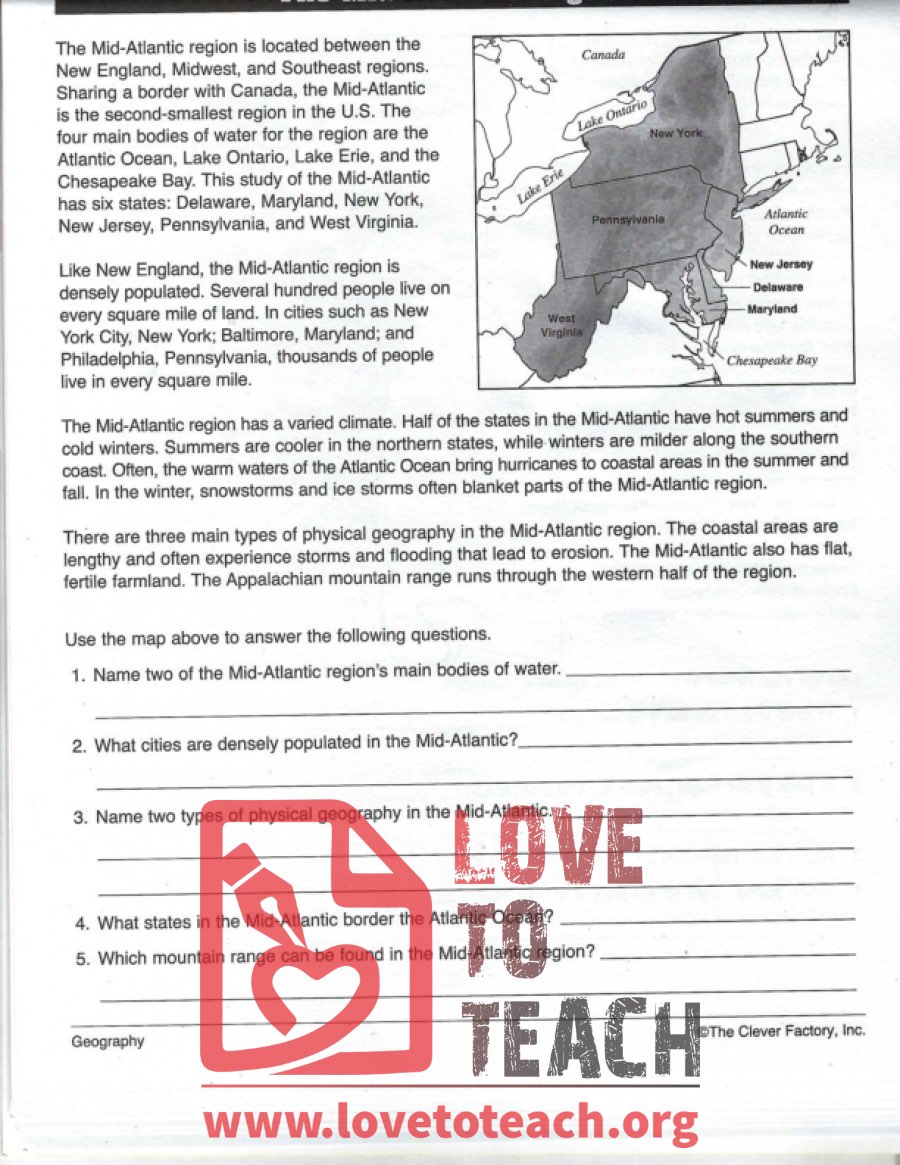 The Mid-Atlantic region is located between the
New England, Midwest, and Southeast regions.
Sharing a border with Canada, the Mid-Atlantic
is the second-smallest region in the U.S. The
four main bodies of water for the region are the
Atlantic Ocean, Lake Ontario, Lake Erie, and the
Chesapeake Bay. This study of the Mid-Atlantic
has six states: Delaware, Maryland, New York,
New Jersey, Pennsylvania, and West Virginia.
Like New England, the Mid-Atlantic region is
densely populated. Several hundred people live on
every square mile of land. In cities such as New
York City, New York; Baltimore, Maryland; and
Philadelphia, Pennsylvania, thousands of people
live in every square mile.
Canada
Lake Ontario
New York
Lake Erie
Pennsylvania
Atlantic
Ocean
New Jersey
Delaware
Maryland
West
Virginia
Chesapeake Bay
The Mid-Atlantic region has a varied climate. Half of the states in the Mid-Atlantic have hot summers and
cold winters. Summers are cooler in the northern states, while winters are milder along the southern
coast. Often, the warm waters of the Atlantic Ocean bring hurricanes to coastal areas in the summer and
fall. In the winter, snowstorms and ice storms often blanket parts of the Mid-Atlantic region.
There are three main types of physical geography in the Mid-Atlantic region. The coastal areas are
lengthy and often experience storms and flooding that lead to erosion. The Mid-Atlantic also has flat,
fertile farmland. The Appalachian mountain range runs through the western half of the region.
Use the map above to answer the following questions.
1. Name two of the Mid-Atlantic region's main bodies of water.
2. What cities are densely populated in the Mid-Atlantic?
3. Name two types of physical geography in the Mid-Atlantic.
4. What states in the Mid-Atlantic border the Atlantic Ocean?
5. Which mountain range can be found in the Mid-Atlantic region?
Geography
©The Clever Factory, Inc.
LOVE
TO
TEACH
www.lovetoteach.org